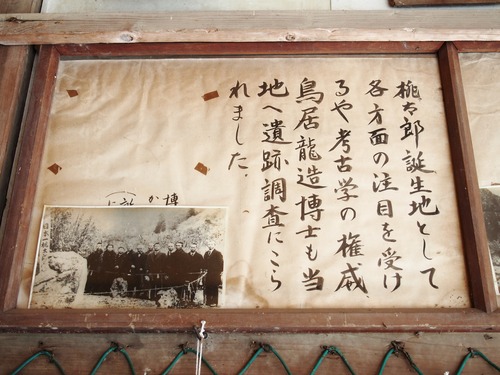 桃太郎誕生地として
各方面の注目を受け
るや考古学の権威
鳥居龍造博士も当
地へ遺跡調査にこら
れました.
博
か